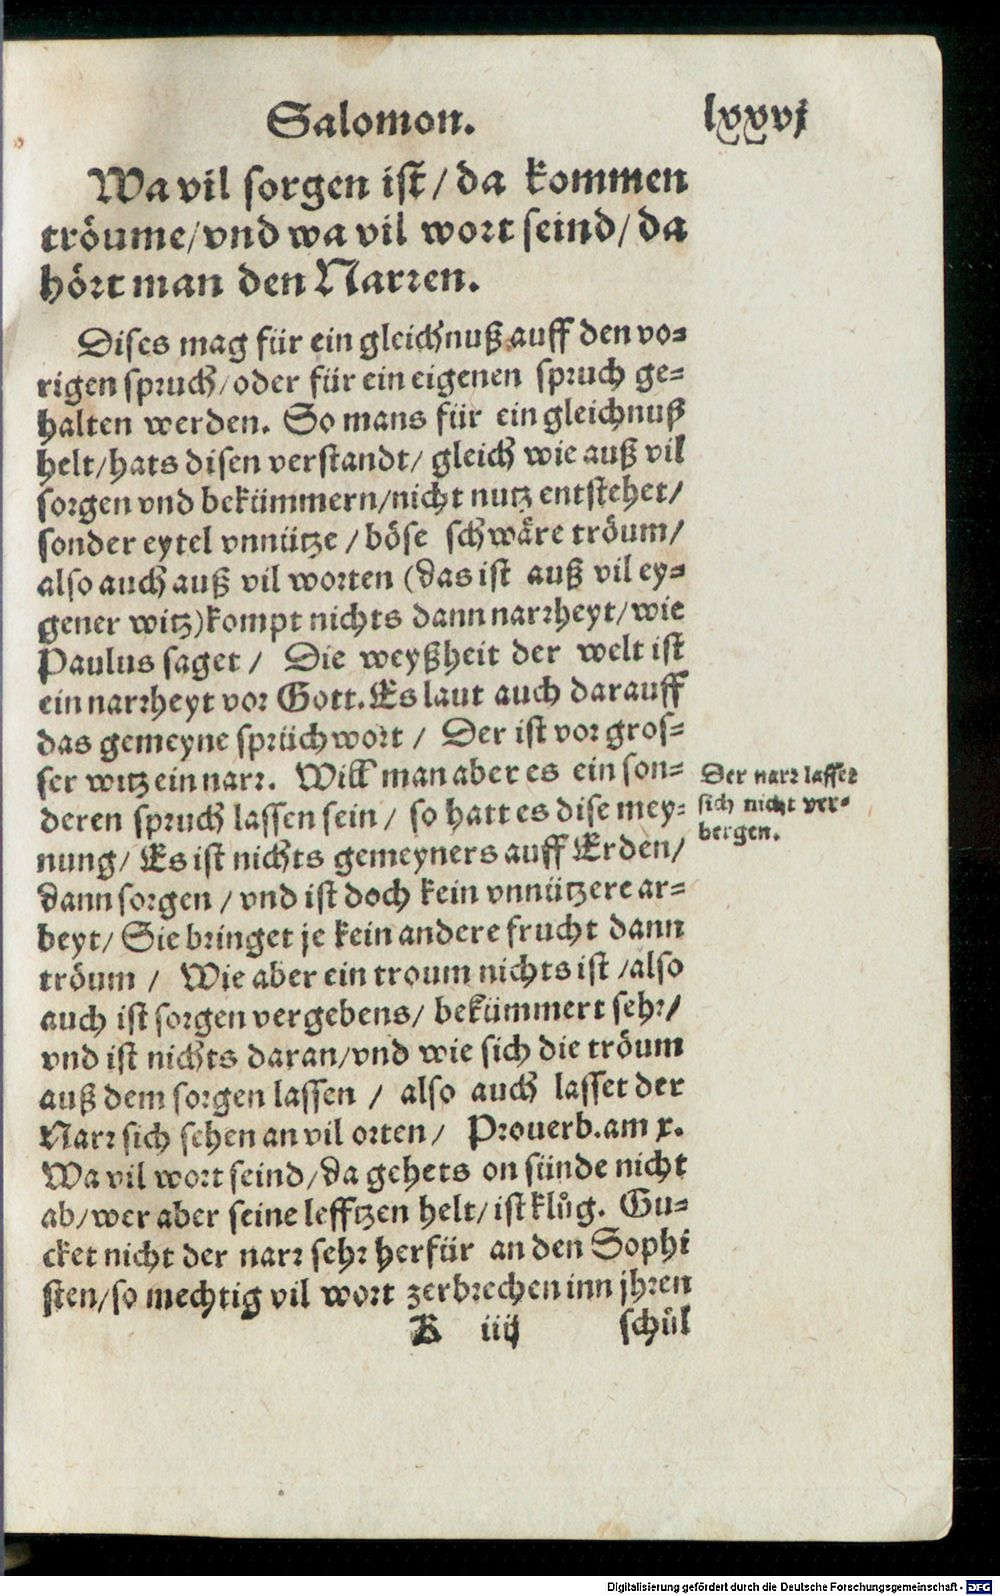 Salomon. lxxvj
Wa vil sorgen ist / da kommen
tröume/vnd wa vil wort seind/da
hört man den Narren.
Dises mag für ein gleichnuß auff den vo=
rigen spruch/oder für ein eigenen spruch ge=
halten werden. So mans für ein gleichnuß
helt/hats disen verstandt/ gleich wie auß vil
sorgen vnd bekümmern/nicht nutz entstehet/
sonder eytel vnnütze / böse schwäre tröum/
also auch auß vil worten (das ist auß vil ey=
gener witz)kompt nichts dann narrheyt/wie
Paulus saget / Die weyßheit der welt ist
ein narrheyt vor Gott. Es laut auch darauff
das gemeyne sprüchwort / Der ist vor gros=
ser witz ein narr. Will man aber es ein son=
deren spruch lassen sein / so hatt es dise mey=
nung/ Es ist nichts gemeyners auff Erden/
dann sorgen / vnd ist doch kein vnnützere ar=
beyt/ Sie bringet je kein andere frucht dann
tröum / Wie aber ein troum nichts ist /also
auch ist sorgen vergebens/ bekümmert sehr/
vnd ist nichts daran/vnd wie sich die tröum
auß dem sorgen lassen / also auch lasset der
Narr sich sehen an vil orten/ Prouerb. am x.
Wa vil wort seind/da gehets on sünde nicht
ab/wer aber seine lefftzen helt/ist klůg. Gu=
cket nicht der narr sehr herfür an den Sophi
sten/so mechtig vil wort zerbrechen inn jhren
K iiij schůl
Der narr lasset
sich nicht ver=
bergen.
Digitalisierung gefördert durch die Deutsche Forschungsgemeinschaft - DFG